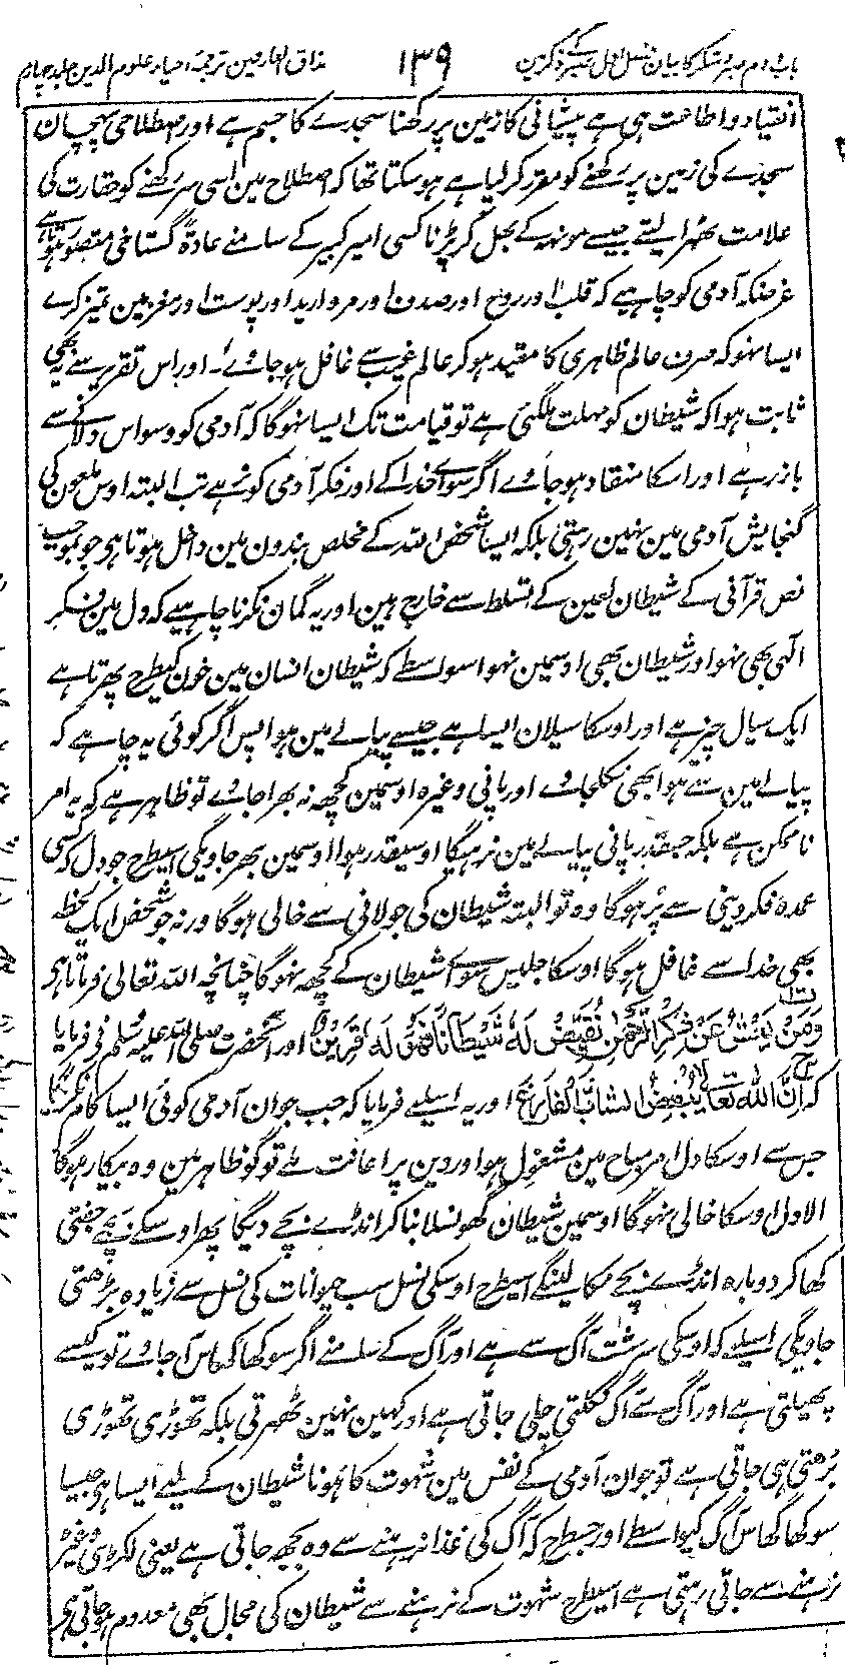 باب دوم صبر و شکر کا بیان فصل اول صبر کے ذکر مین ۱۳۹ مذاق العارفین ترجمۂ احیاء علوم الدین جلد چہارم
انقیاد و اطاعت ہی ہے پیشانی کا زمین پر رکھنا سجدے کا جسم ہے اور اصطلاحی پہچان
سجدے کی زمین پر رکھنے کو مقرر کر لیا ہے ہو سکتا تھا کہ اصطلاح مین اسی سر رکھنے کو حقارت کی
علامت ٹھہرا لیتے جیسے مونہہ کے بھل گر پڑنا کسی امیر کبیر کے سامنے عادۃً گستاخی متصور ہوتا ہے
غرضکہ آدمی کو چاہیے کہ قلب اور روح اور صدف اور مروارید اور پوست اور مغز مین تمیز کرے
ایسا نہو کہ صرف عالم ظاہری کا مقید ہو کر عالم غیب سے غافل ہو جاوے۔ اور اس تقریر سے یہ بھی
ثابت ہوا کہ شیطان کو مہلت ملگئی ہے تو قیامت تک ایسا نہوگا کہ آدمی کو وسواس دلانے سے
باز رہے اور اسکا منقاد ہو جاوے اگر سواے خدا کے اور فکر آدمی کو نرہے تب البتہ اوس ملعون کی
گنجایش آدمی مین نہین رہتی بلکہ ایسا شخص اللہ کے مخلص بندون مین داخل ہوتا ہے جو بموجب
نص قرآنی کے شیطان لعین کے تسلط سے خارج ہین اور یہ گمان نکرنا چاہیے کہ دل مین فکر
الٰہی بھی نہو اور شیطان بھی اوسمین نہو اسواسطے کہ شیطان انسان مین خون کیطرح پھرتا ہے
ایک سیال چیز ہے اور اوسکا سیلان ایسا ہے جیسے پیالے مین ہوا پس اگر کوئی یہ چاہے کہ
پیالے مین سے ہوا بھی نکلجاے اور پانی وغیرہ اوسمین کچھہ نہ بھرا جاوے تو ظاہر ہے کہ یہ امر
ناممکن ہے بلکہ جسقدر پانی پیالے مین نرہیگا اوسیقدر ہوا اوسمین بھر جاویگی اسیطرح جو دل کہ کسی
عمدہ فکر دینی سے پر ہوگا وہ تو البتہ شیطان کی جولانی سے خالی ہوگا ورنہ جو شخص ایک لحظہ
بھی خدا سے غافل ہوگا اوسکا جلیس سواے شیطان کے کچھہ نہوگا چنانچہ اللہ تعالی فرماتا ہے
وَمَنْ یَعْشُ عَنْ ذِکْرِ الرَّحْمٰنِ نُقَیِّضْ لَہٗ شَیْطَانًا فَہُوَ لَہٗ قَرِیْنٌ اور آنحضرت صلی اللہ علیہ وسلم نے فرمایا
کہ اِنَّ اللہَ تَعَالٰی یُبْغِضُ الشَّابَّ الْفَارِغَ اور یہ اسلیے فرمایا کہ جب جوان آدمی کوئی ایسا کام نکریگا
جس سے اوسکا دل امر مباح مین مشغول ہو اور دین پر اعانت ملے تو گو ظاہر مین وہ بیکار ہوگا
الا دل اوسکا خالی نہوگا اوسمین شیطان گھونسلا بنا کر انڈے بچے دیگا پھر اوسکے بچے جفتی
کھا کر دوبارہ انڈے بچے نکالینگے اسیطرح اوسکی نسل سب حیوانات کی نسل سے زیادہ بڑھتی
جاویگی اسلیے کہ اوسکی سرشت آگ سے ہے اور آگ کے سامنے اگر سوکھا گھاس آ جاوے تو کیسے
پھیلتی ہے اور آگ سے آگ نکلتی چلی جاتی ہے اور کہین نہین ٹھہرتی بلکہ تھوڑی تھوڑی
بڑھتی ہی جاتی ہے تو جوان آدمی کے نفس مین شہوت کا ہونا شیطان کے لیے ایسا ہے جیسا
سوکھا گھاس آگ کیواسطے اور جسطرح کہ آگ کی غذا نرہنے سے وہ بجھہ جاتی ہے یعنی لکڑی وغیرہ
نرہنے سے جاتی رہتی ہے اسیطرح شہوت کے نرہنے سے شیطان کی مجال بھی معدوم ہو جاتی ہے